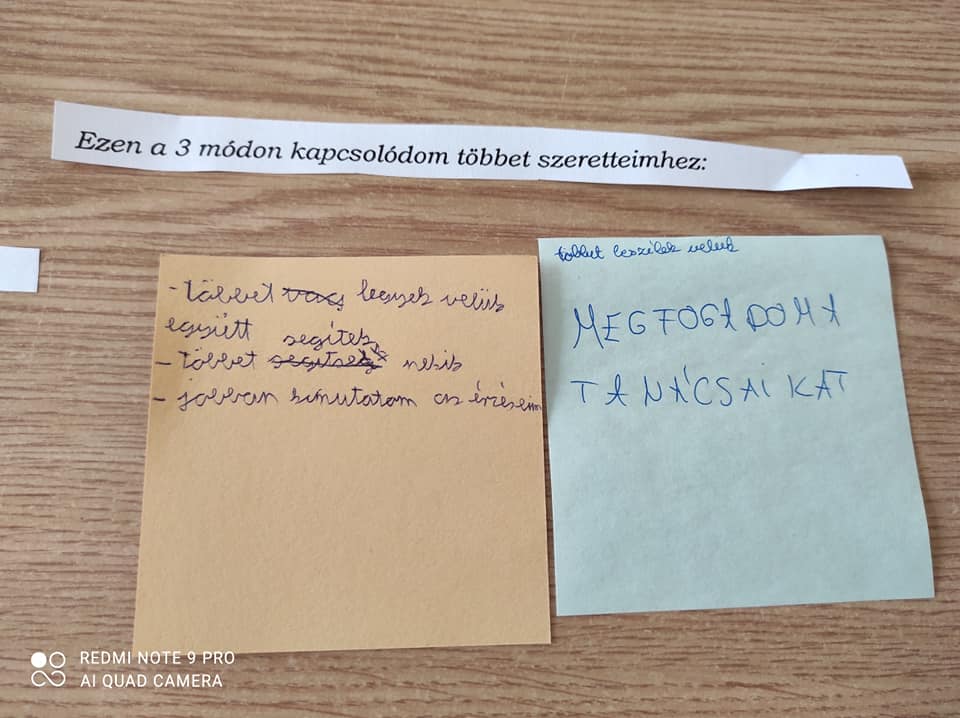 Ezen a 3 módon kapcsolódom többet szeretteimhez:
- többet legyek velük
együtt segítek
- többet nekik
- jobban kimutatom az érzéseim
többet leszülök velük
MEGFOGADOM A
TANÁCSAIKAT
REDMI NOTE 9 PRO
AI QUAD CAMERA